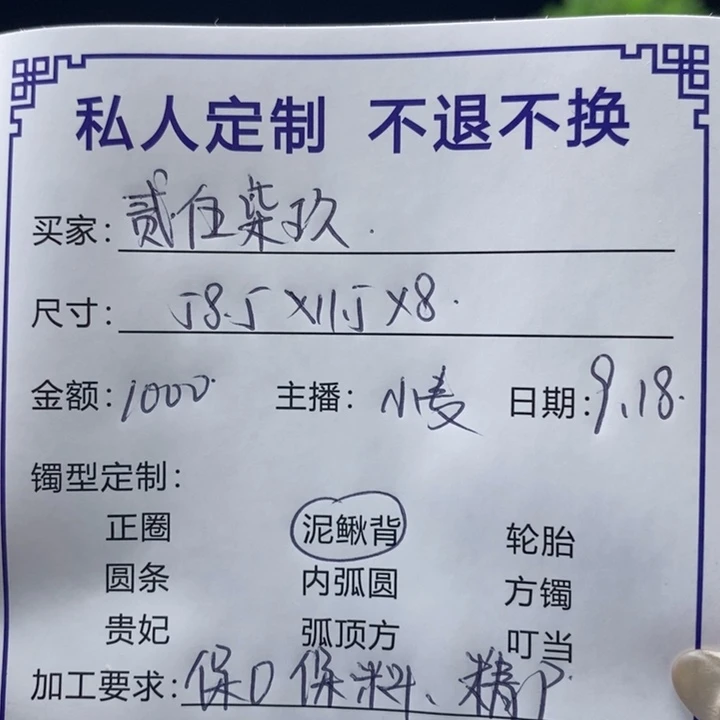 私人定制 不退不换
买家: 贰伍柒玖
尺寸: 58.5×11.5×8
金额: 1000 主播: 小麦 日期: 9.18
镯型定制:
正圈 泥鳅背 轮胎
圆条 内弧圆 方镯
贵妃 弧顶方 叮当
加工要求: 保口保料、精